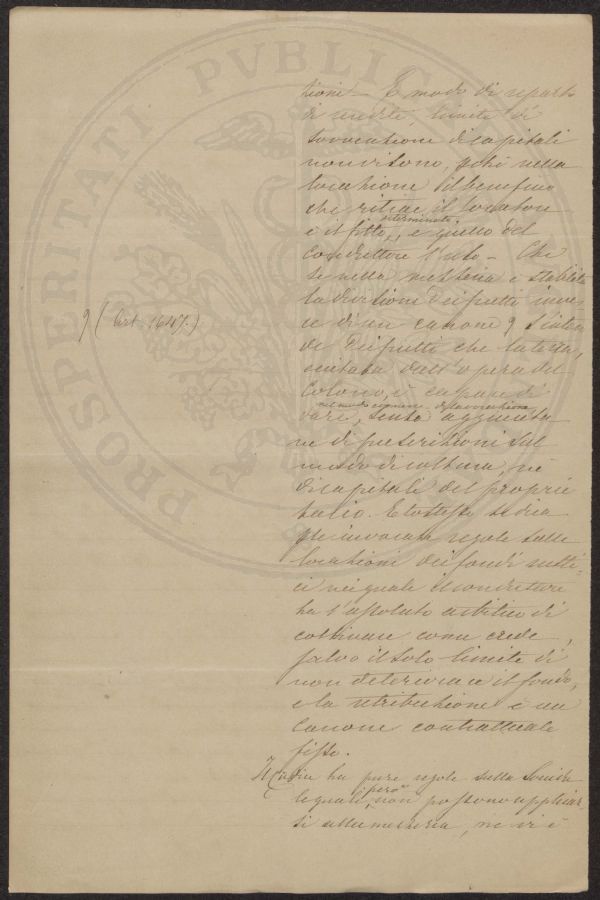 PROSPERITATI PVBLICAE
zioni – E modo di riparto
di rendite, limite di
sovvenzione di capitali
non vi sono,
locazione il beneficio
che ritrae il locatore
è il fitto determinato, e quello del
conduttore l'uso – Che
se nella mezzeria è stabilita
la divisione dei frutti inve
ce di un canone 9
dei frutti che
dall'opera del
Colono, è capace di
senza aggiunta
ne di prescrizioni sul
modo di coltura, ne
di capitali del proprie
tario. E lo stesso si dica
invocate regole sulle
locazioni dei fondi rusti
ci nei quale il conduttore
ha l'assoluto arbitrio di
coltivare come crede,
salvo il solo limite di
non deteriorare il fondo,
e la retribuzione è un
canone contrattuale
fisso.
9 (Art. 1647.)
Il Codice ha pure regole sulla Soccida
le quali però non possono applicar
si alla mezzeria, ne vi è